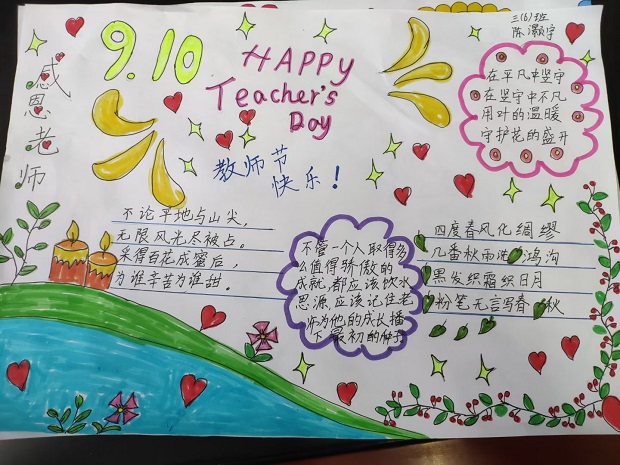 三(6)班
陈灏宇
9.10
HAPPY
Teacher's
Day
教师节
快乐!
感恩老师
在平凡中坚守
在坚守中不凡
用叶的温暖
守护花的盛开
不论平地与山尖,
无限风光尽被占。
采得百花成蜜后,
为谁辛苦为谁甜。
不管一个人取得多
么值得骄傲的
成就,都应该饮水
思源,应该记住老
师为他的成长播
下最初的种子
四度春风化绸缪
几番秋雨洗鸿沟
黑发积霜织日月
粉笔无言写春秋